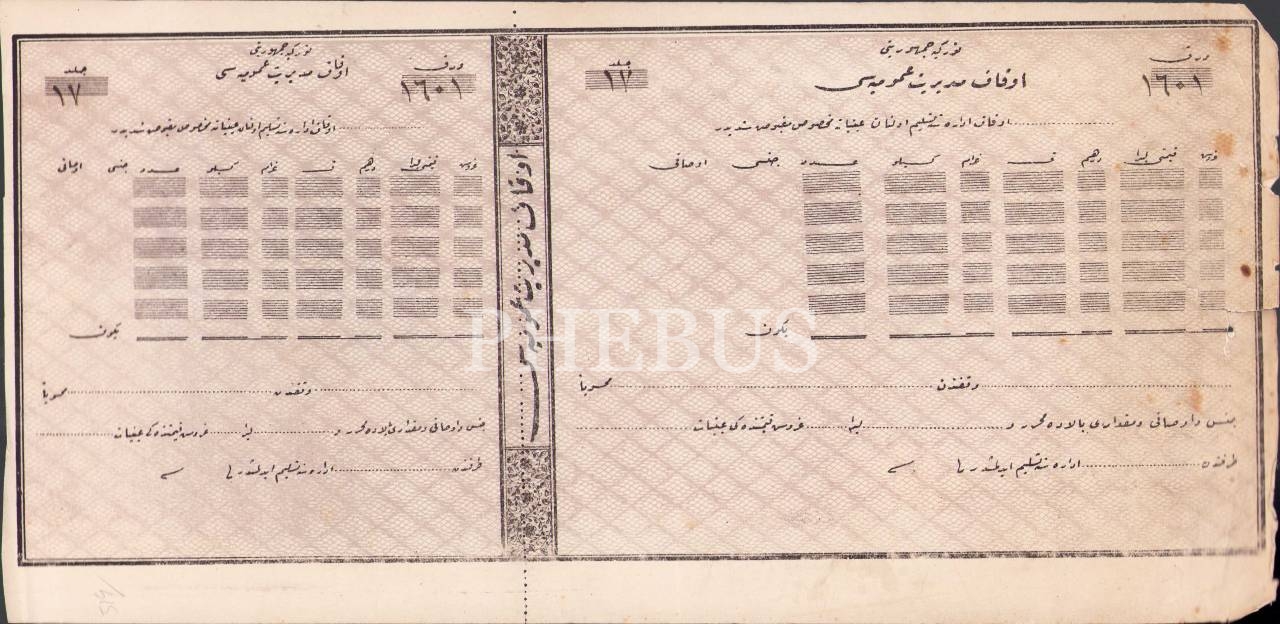 تورکیه جمهوریتی
اوقاف مدیریت عمومیه‌سی
ورق
١٦٠١
جلد
١٧
اوقاف اداره‌سنه تسلیم اولنان عینیاته مخصوص مقبوض سندیدر
غروش قیمتی لیرا درهم ق غرام کیلو عدد جنسی اوصافی
یکون
وقفندن محسوباً
جنس و اوصافی و مقداری بالاده محرر و لیرا غروش قیمتنده‌کی عینیات
طرفندن اداره‌سنه تسلیم ایدلمشدر فی سنه
اوقاف مدیریت عمومیه‌سی
تورکیه جمهوریتی
اوقاف مدیریت عمومیه‌سی
ورق
١٦٠١
جلد
١٧
اوقاف اداره‌سنه تسلیم اولنان عینیاته مخصوص مقبوض سندیدر
غروش قیمتی لیرا درهم ق غرام کیلو عدد جنسی اوصافی
یکون
وقفندن محسوباً
جنس و اوصافی و مقداری بالاده محرر و لیرا غروش قیمتنده‌کی عینیات
طرفندن اداره‌سنه تسلیم ایدلمشدر فی سنه
PHEBUS